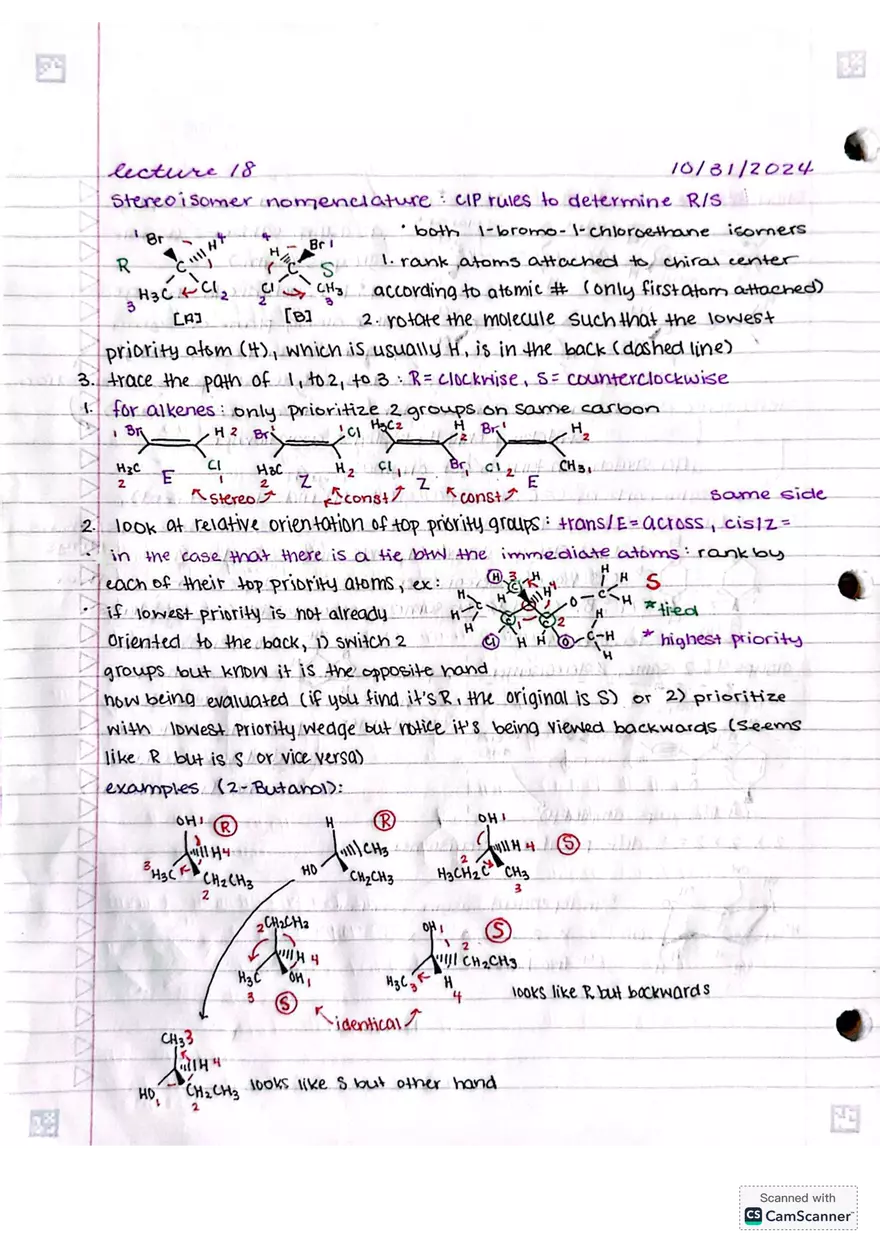 lecture 18 10/31/2024
Stereoisomer nomenclature : CIP rules to determine R/S
• both 1-bromo-1-chloroethane isomers
1 Br H 4 4 H Br 1
R C C S
1. rank atoms attached to chiral center
3 H3C Cl 2 Cl 2 CH3 3
according to atomic # (only first atom attached)
[A] [B]
2. rotate the molecule such that the lowest
priority atom (4), which is usually H, is in the back (dashed line)
3. trace the path of 1, to 2, to 3 : R = clockwise, S = counterclockwise
1. for alkenes : only prioritize 2 groups on same carbon
1 Br H 2 Br 1 1 Cl H3C 2 H 2 Br 1 H 2
H3C 2 E Cl 1 H3C 2 Z H 2 Cl 1 Z Br 1 Cl 2 E CH3 1
stereo const const
same side
2. look at relative orientation of top priority groups : trans/E = across, cis/Z =
• in the case that there is a tie btw the immediate atoms : rank by
each of their top priority atoms, ex:
• if lowest priority is not already
oriented to the back, 1) switch 2
H 3 H H H
C H 4 C H S
H C O H * tied
H C 1 C 2 H
H H H H O C-H * highest priority
H
groups but know it is the opposite hand
now being evaluated (if you find it's R, the original is S) or 2) prioritize
with lowest priority wedge but notice it's being viewed backwards (seems
like R but is S or vice versa)
examples (2-Butanol):
OH 1 R H R OH 1
H 4 CH3 H 4 S
3 H3C CH2CH3 2 HO CH2CH3 2 H3CH2C CH3 3
2 CH2CH2 OH 1 S
H 4 2 CH2CH3
H3C 3 OH 1 H3C 3 H 4
S looks like R but backwards
identical
CH3 3
H 4
HO 1 CH2CH3 2 looks like S but other hand
Scanned with
CS CamScanner